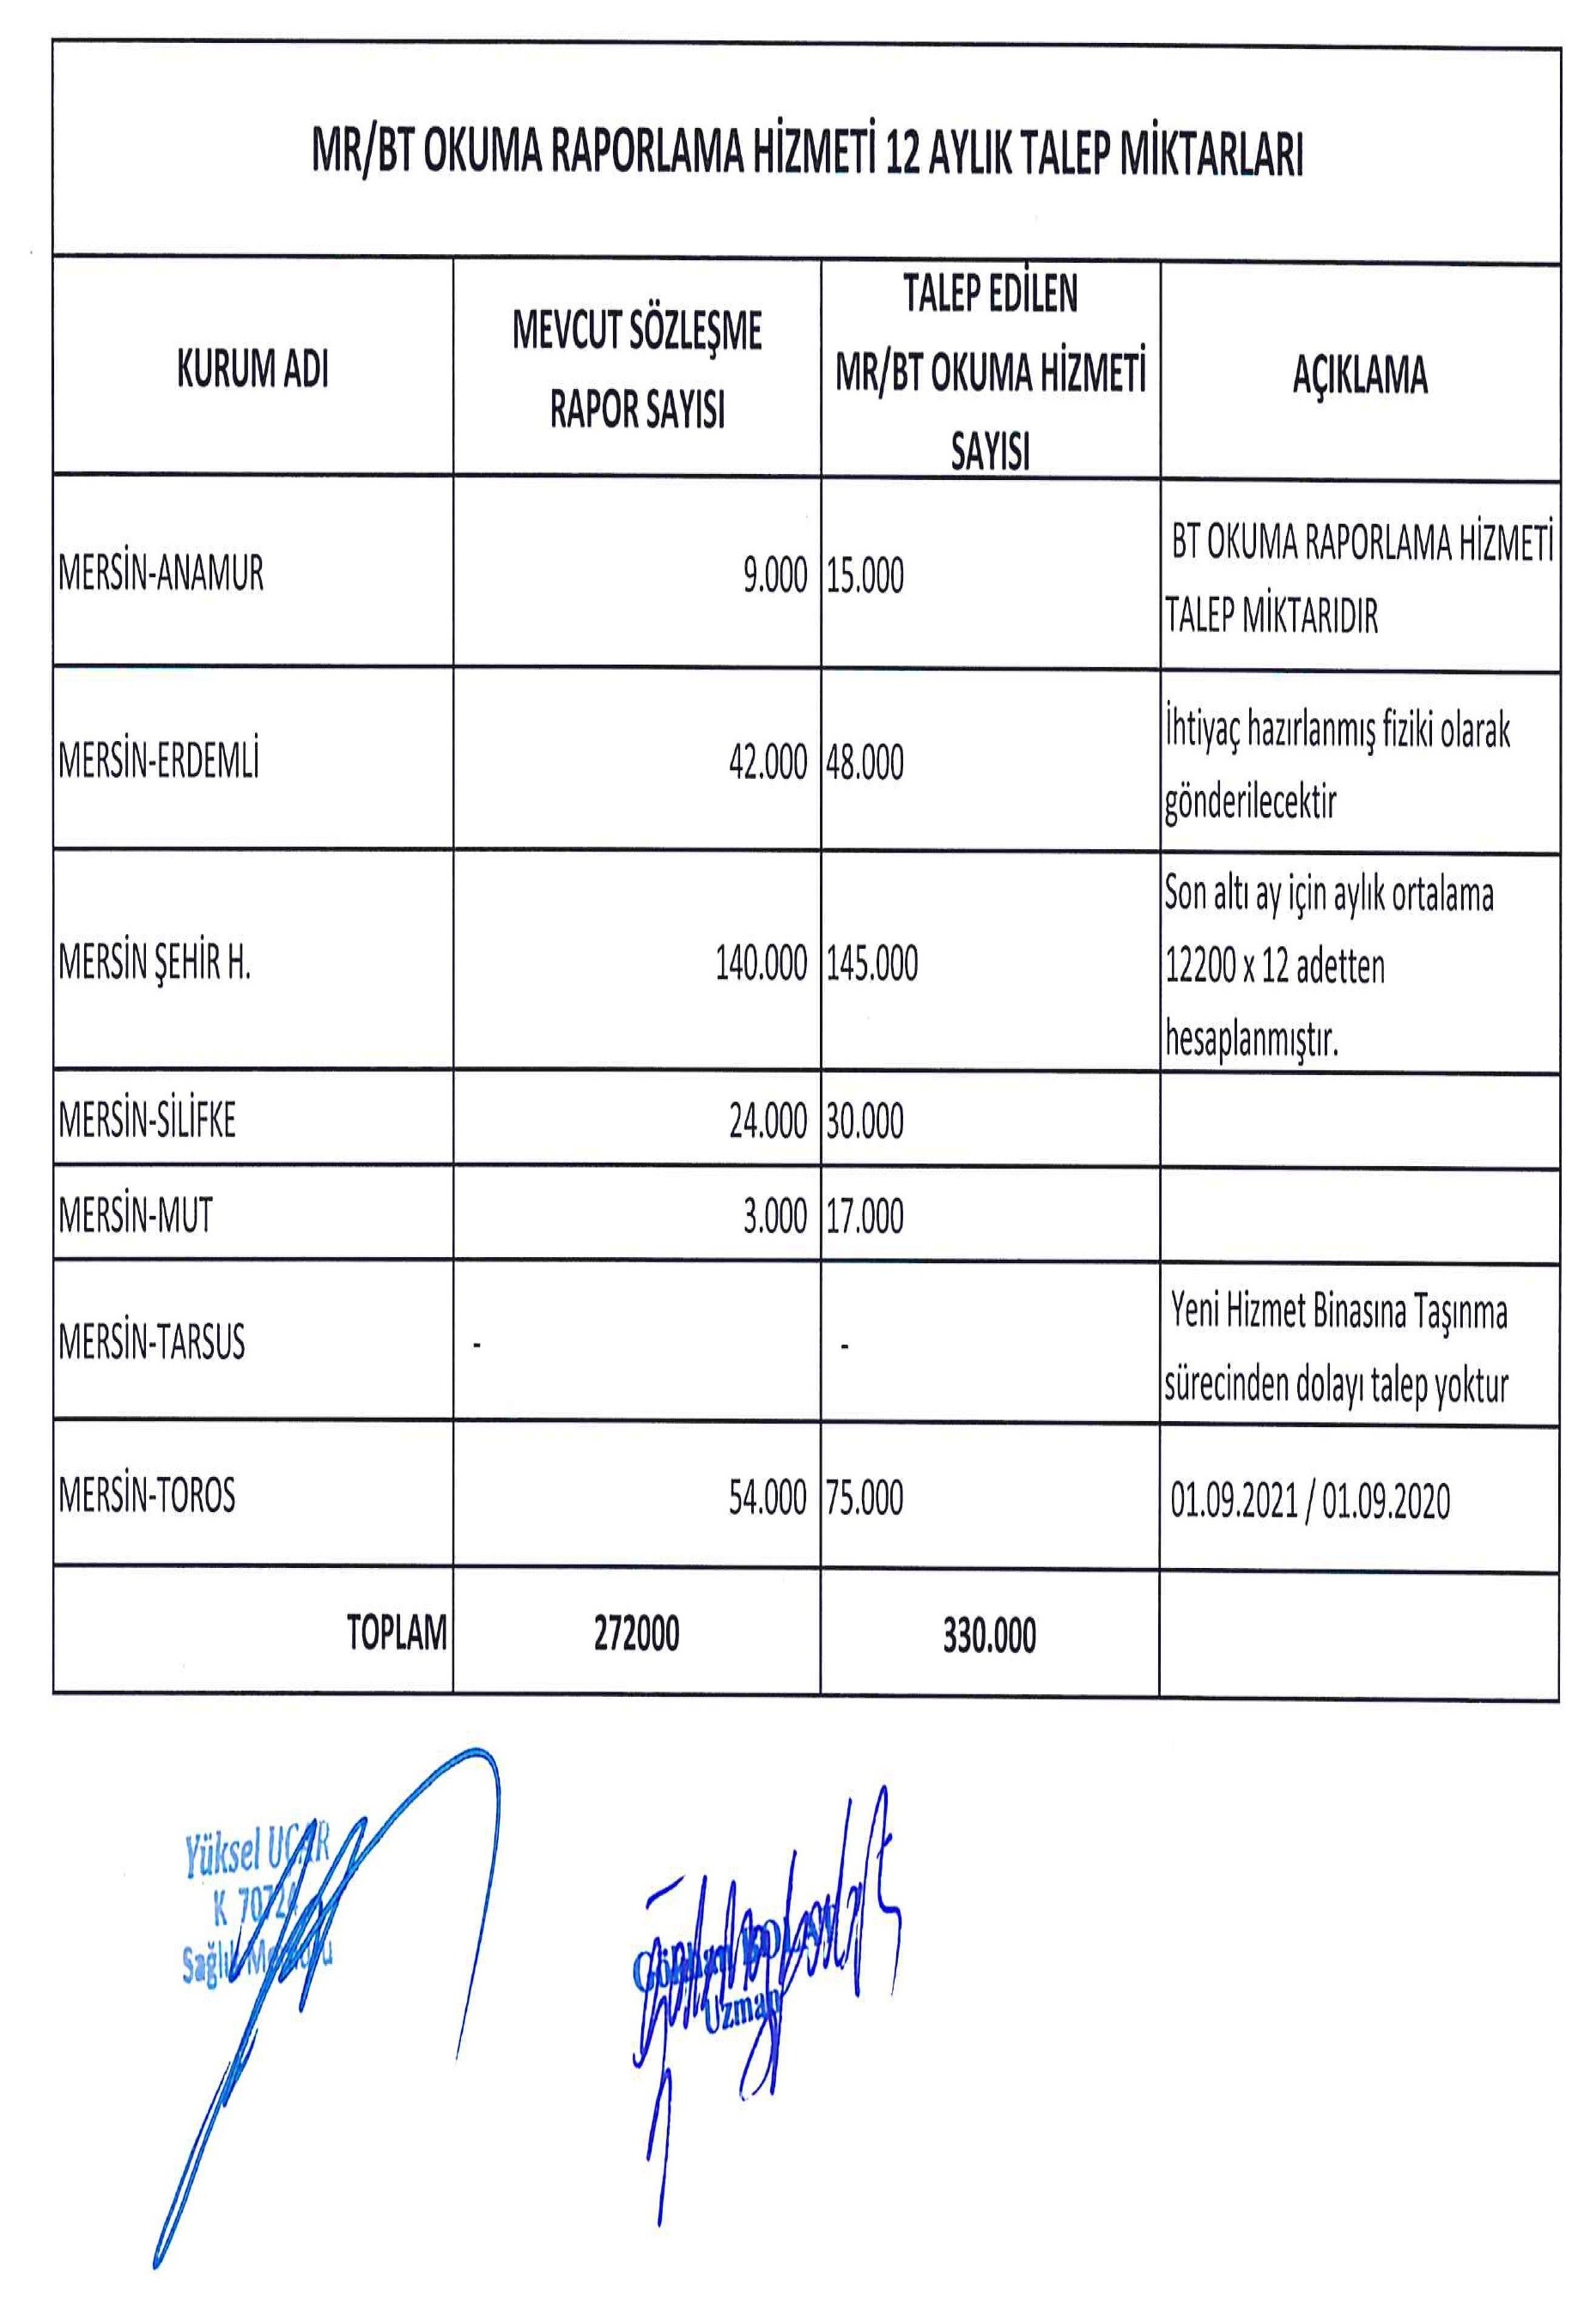 MR/BT OKUMA RAPORLAMA HİZMETİ 12 AYLIK TALEP MİKTARLARI
KURUM ADI
MEVCUT SÖZLEŞME
RAPOR SAYISI
TALEP EDİLEN
MR/BT OKUMA HİZMETİ
SAYISI
AÇIKLAMA
MERSİN-ANAMUR
9.000
15.000
BT OKUMA RAPORLAMA HİZMETİ
TALEP MİKTARIDIR
MERSİN-ERDEMLİ
42.000
48.000
İhtiyaç hazırlanmış fiziki olarak
gönderilecektir
MERSİN ŞEHİR H.
140.000
145.000
Son altı ay için aylık ortalama
12200 x 12 adetten
hesaplanmıştır.
MERSİN-SİLİFKE
24.000
30.000
MERSİN-MUT
3.000
17.000
MERSİN-TARSUS
-
-
Yeni Hizmet Binasına Taşınma
sürecinden dolayı talep yoktur
MERSİN-TOROS
54.000
75.000
01.09.2021 / 01.09.2020
TOPLAM
272000
330.000
Yüksel UÇAR
K
Uzman